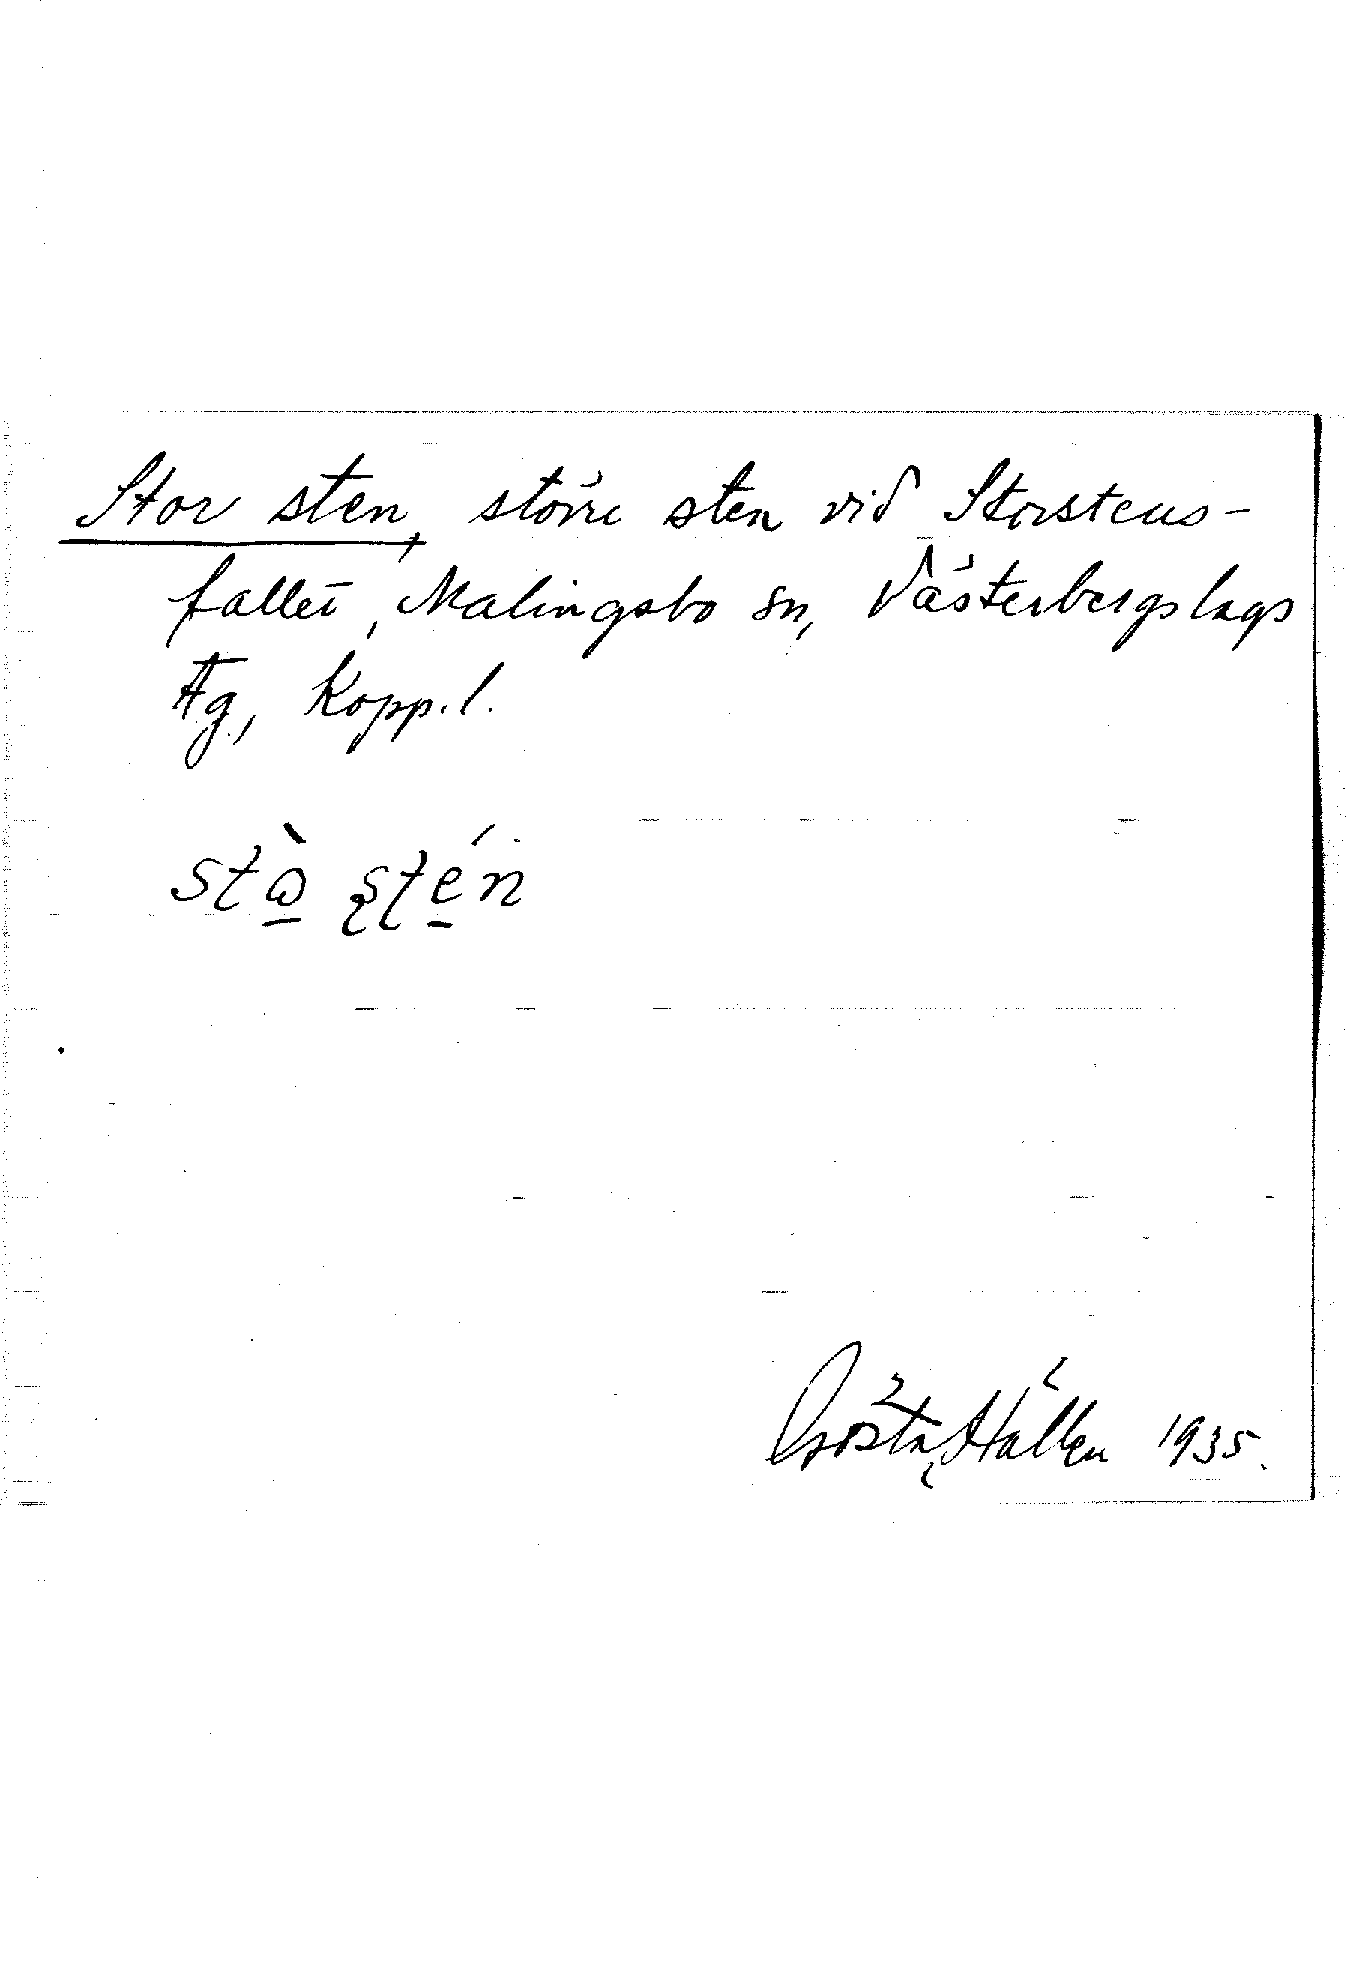 Stor sten, större sten vid Storstens-
fallet, Malingsbo sn, Västerbergslags
Fg, Kopp. l.
stὼ ʂtén
Gösta Hällen 1935.